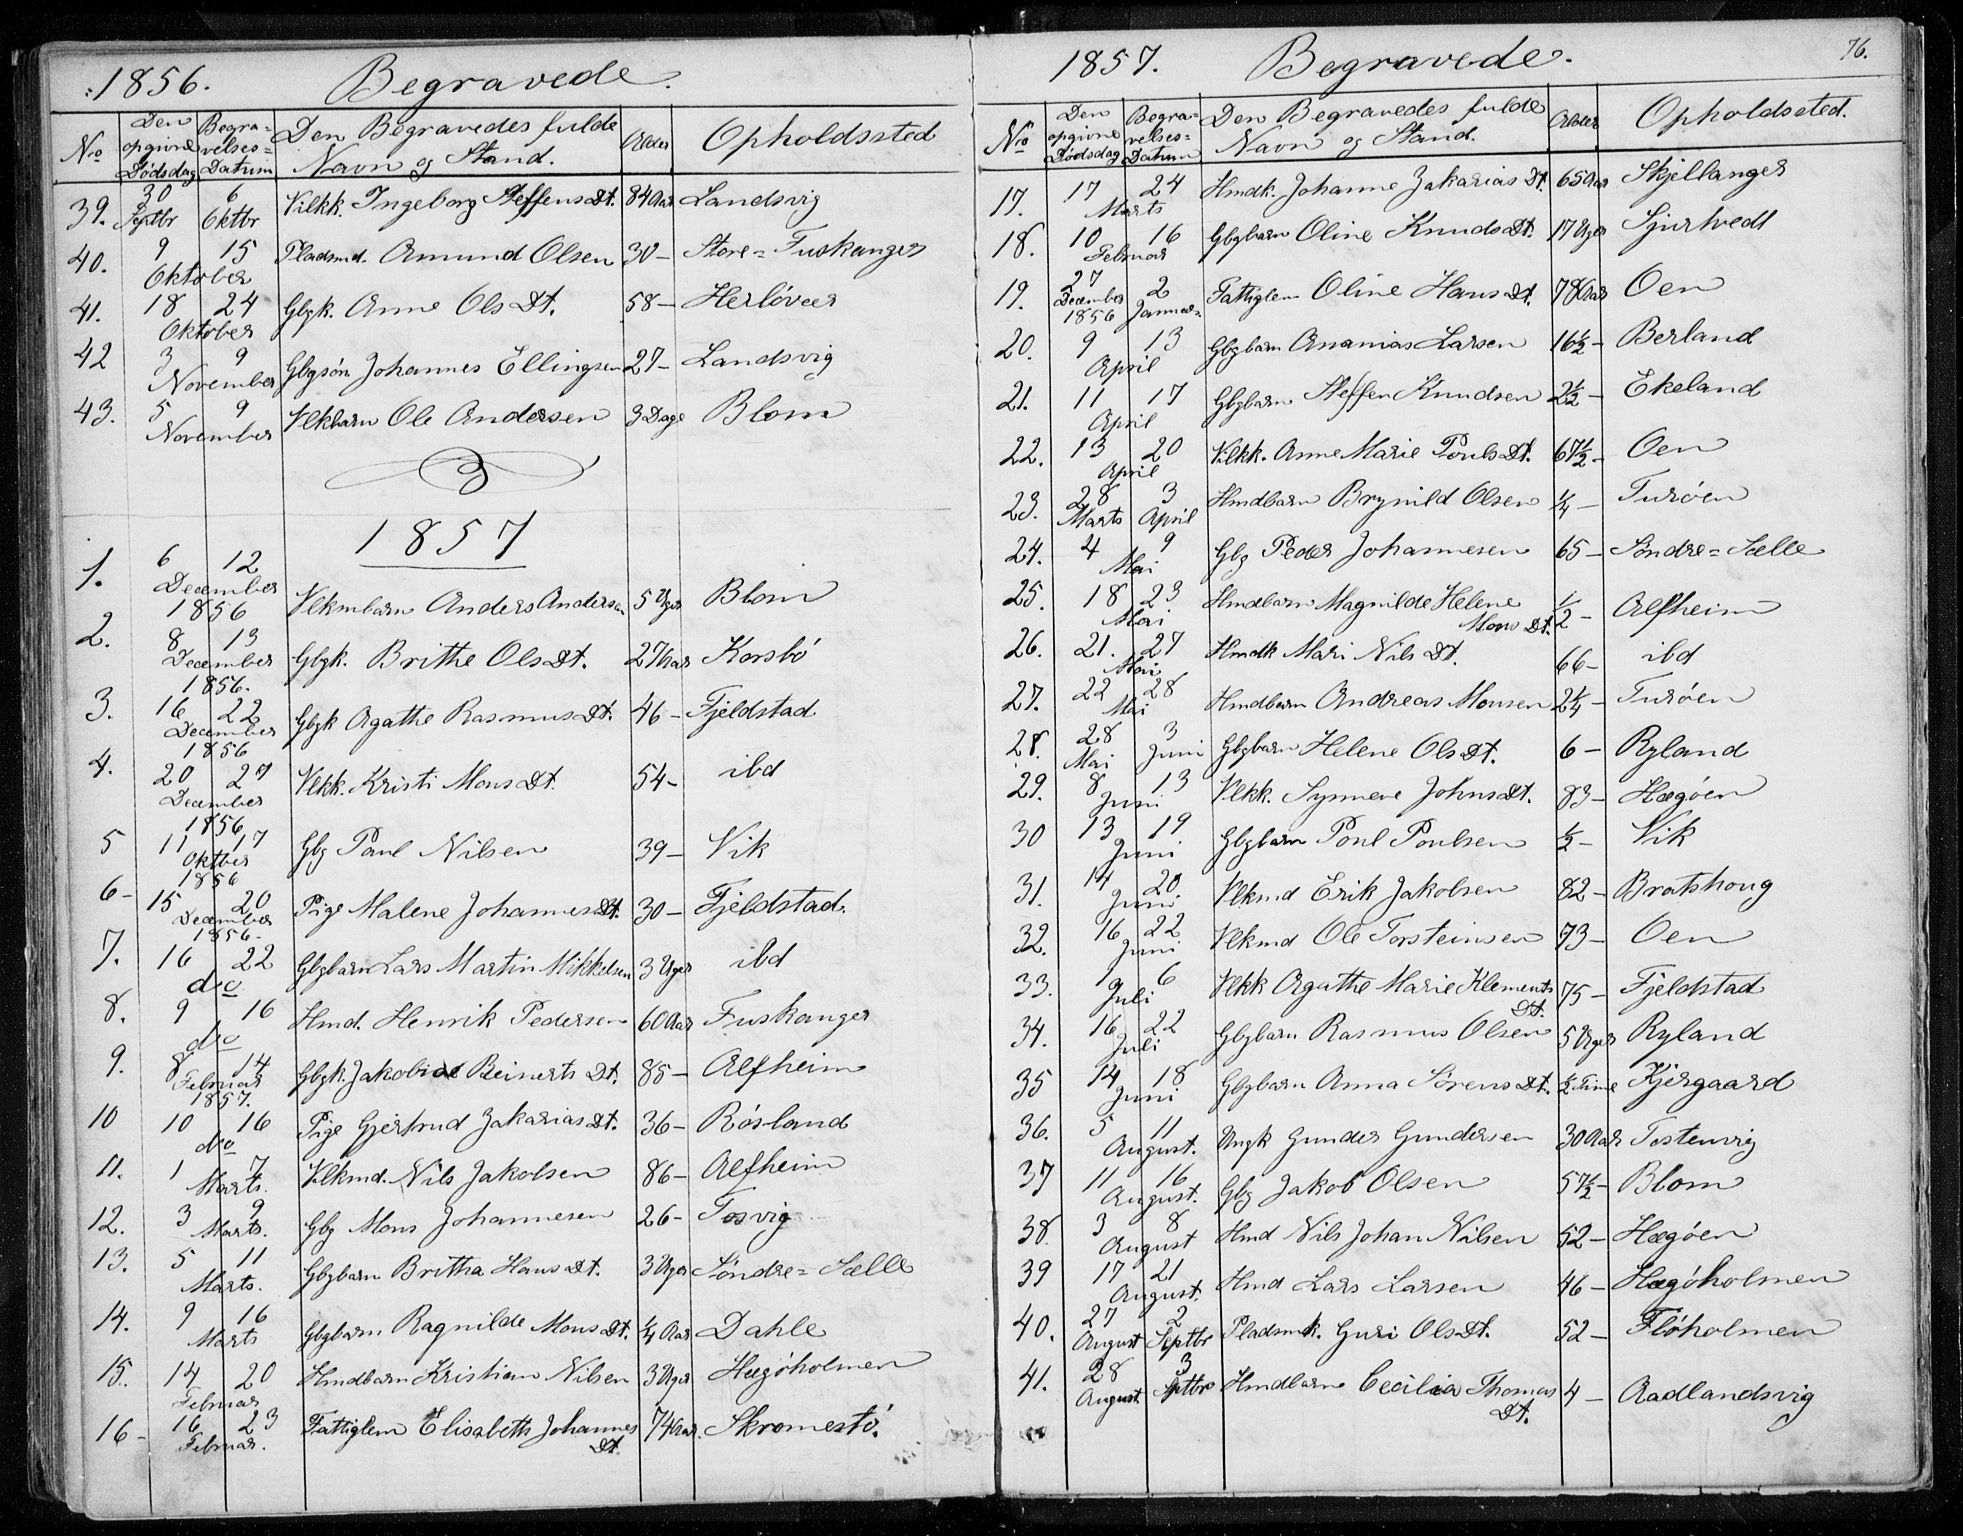 :1856. Begravede.
No Den opgivne Dødsdag Begra=velses=Datum Den Begravedes fulde Navn og Stand. Alder Opholdssted
39. 30 Septbr 6 Oktbr Vilkk. Ingeborg SteffensDt. 84 Aar Landsvig
40. 9 15 Oktober Pladsmd. Amund Olsen 30 - Store=Fuskanger
41. 18 24 Oktober Gbgk. Anne OlsDt. 58 - Herløveer
42 3 9 November Gbgsøn Johannes Ellingsen 27 - Landsvig
43. 5 9 November Vlkbarn Ole Andersen 3 Dage Blom
1857
1. 6 12 December 1856 Vlkmbarn Anders Andersen 5 Uger Blom
2. 8 13 December 1856. Gbgk. Brithe OlsDt. 27 Aar Korsbø
3. 16 22 December 1856 Gbgk Agathe RasmusDt. 46 - Fjeldstad
4. 20 27 December 1856 Vlkk. Kristi MonsDt. 54 - ibd
5 11 17 Oktber 1856 Gbg Paul Nilsen 39 - Vik
6 - 15 20 December 1856 - Pige Malene JohannesDt. 30 - Fjeldstad.
7. 16 22 do Gbgbarn Lars Martin Mikkelsen 3 Uger ibd
8. 9 16 do Hmd. Henrik Pedersen 60 Aar Fuskanger
9. 8 14 Februar 1857. Gbgk. Jakobine Reinerts Dt. 85 - Alfheim
10 10 16 do Pige Gjertrud ZakariasDt. 36 - Rósland
11. 1 7 Marts. Vlkmd. Nils Jakobsen 86 - Alfheim
12. 3 9 Marts. Gbg Mons Johannesen 26 - Tosvig
13. 5 11 Marts. Gbgbarn Britha HansDt. 3 Uger Søndre=Sælle
14. 9 16 Marts Gbgbarn Ragnilde MonsDt. 1/4 Aar Dahle
15. 14 20 Februar Hmdbarn Kristian Nilsen 3 Uger Hægøholmen
16 - 16 23 Februar. Fattiglem Elisabeth Johannes Dt. 74 Aar. Skromestø.
1857. Begravede. 76.
No Den opgivne Dødsdag Begra=velses=Datum Den Begravedes fulde Navn og Stand. Alder Opholdssted.
17. 17 24 Marts Hmdk. Johanne Zakarias Dt. 65 Aar Skjellanger
18. 10 16 Februar Gbgbarn Oline KnudsDt. 17 Uger Sjurtvedt
19. 27 December 1856 2 Januar. Fattiglem Oline HansDt. 78 Aar Oen
20. 9 13 April Gbgbarn Ananias Larsen 16 1/2 - Berland
21. 11 17 April Gbgbarn Steffen Knudsen 2 1/2 - Ekeland
22. 13 20 April Vilkk. Anne Marie PoulsDt. 67 1/2 - Oen
23. 28 Marts 3 April Hmdbarn Brynild Olsen 1/4 - Turøen
24. 4 9 Mai Gbg Peder Johannesen 65 - Søndre=Sælle
25. 18 23 Mai Hmdbarn Magnilde Helene Mons Dt. 1/2 - Alfheim
26. 21. 27 Mai Hmdk Mari Nils Dt. 66 - ibd
27. 22 28 Mai Hmdbarn Andreas Monsen 2 1/4 - Turøen
28. 28 Mai 3 Juni Gbgbarn Helene OlsDt. 6 - Ryland
29. 8 13 Juni Vlkk. Synneve JohnsDt. 83 - Hægøen
30 13 19 Juni Gbgbarn Poul Poulsen 1/2 - Vik
31. 14 20 Juni Vlkmd Erik Jakobsen 82 - Bratshoug
32. 16 22 Juni Vlkmd Ole Torsteinsen 73 - Oen
33. 1 6 Juli Vlkk Agathe Marie Klements Dt. 75 - Fjeldstad
34. 16 22 Juli Gbgbarn Rasmus Olsen 5 Uger Ryland
35 14 18 Juni Gbgbarn Anna SørensDt. 1/2 Time Kjergaard
36. 5 11 August. Ungk Gunder Gundersen 30 Aar Tostenvig
37 11 16 August. Gbg Jakob Olsen 57 1/2 - Blom
38. 3 8 August Hmd Nils Johan Nilsen 52 - Hægøen
39 17 21 August. Hmd Lars Larsen 46 - Hægøholmen
40. 27 August 2 Septbr Pladsmk. Guri OlsDt. 52 - Fløholmen
41. 28 August. 3 Septbr Hmdbarn Cecilia Thomas Dt. 4 - Aadlandsvig